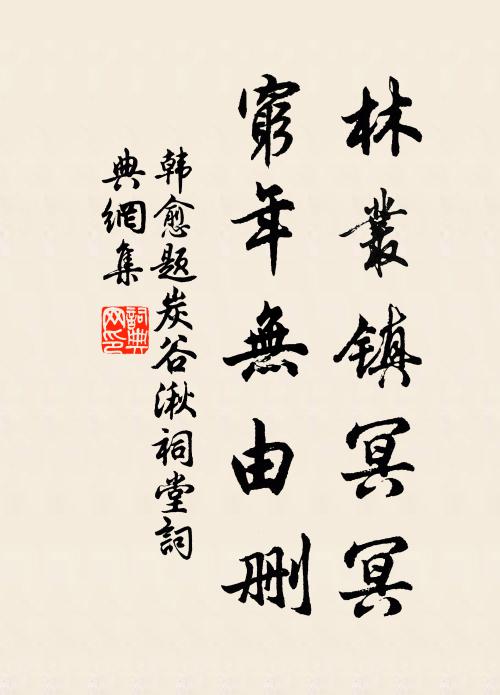 林叢镇冥冥
窮年無由删
韩愈题炭谷湫祠堂詞
典網集
詞典
网印